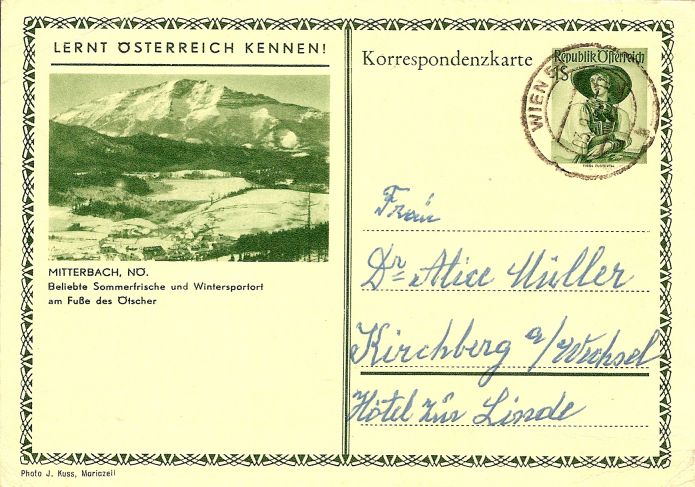 LERNT ÖSTERREICH KENNEN!
MITTERBACH, NÖ.
Beliebte Sommerfrische und Wintersportort
am Fuße des Ötscher
Photo J. Kuss, Mariazell
Korrespondenzkarte
Republik Österreich
WIEN
Frau
Dr Alice Müller
Kirchberg a/Wechsel
Hôtel zur Linde